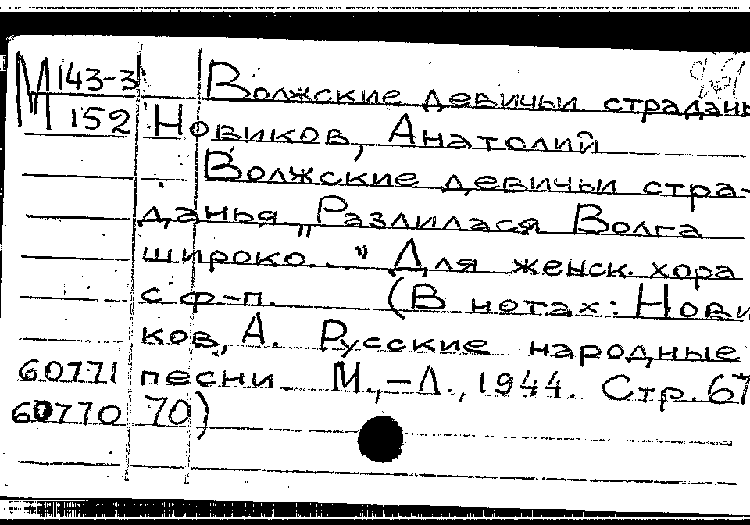 М 143-3 Волжские девичьи страдань
152 Новиков, Анатолий
Волжские девичьи стра-
данья „Разлилася Волга
широко..." Для женск. хора
с ф-п. (В нотах: Нови
ков, А. Русские народные
60771 песни. М.,-Л., 1944. Стр. 67
60770 70)